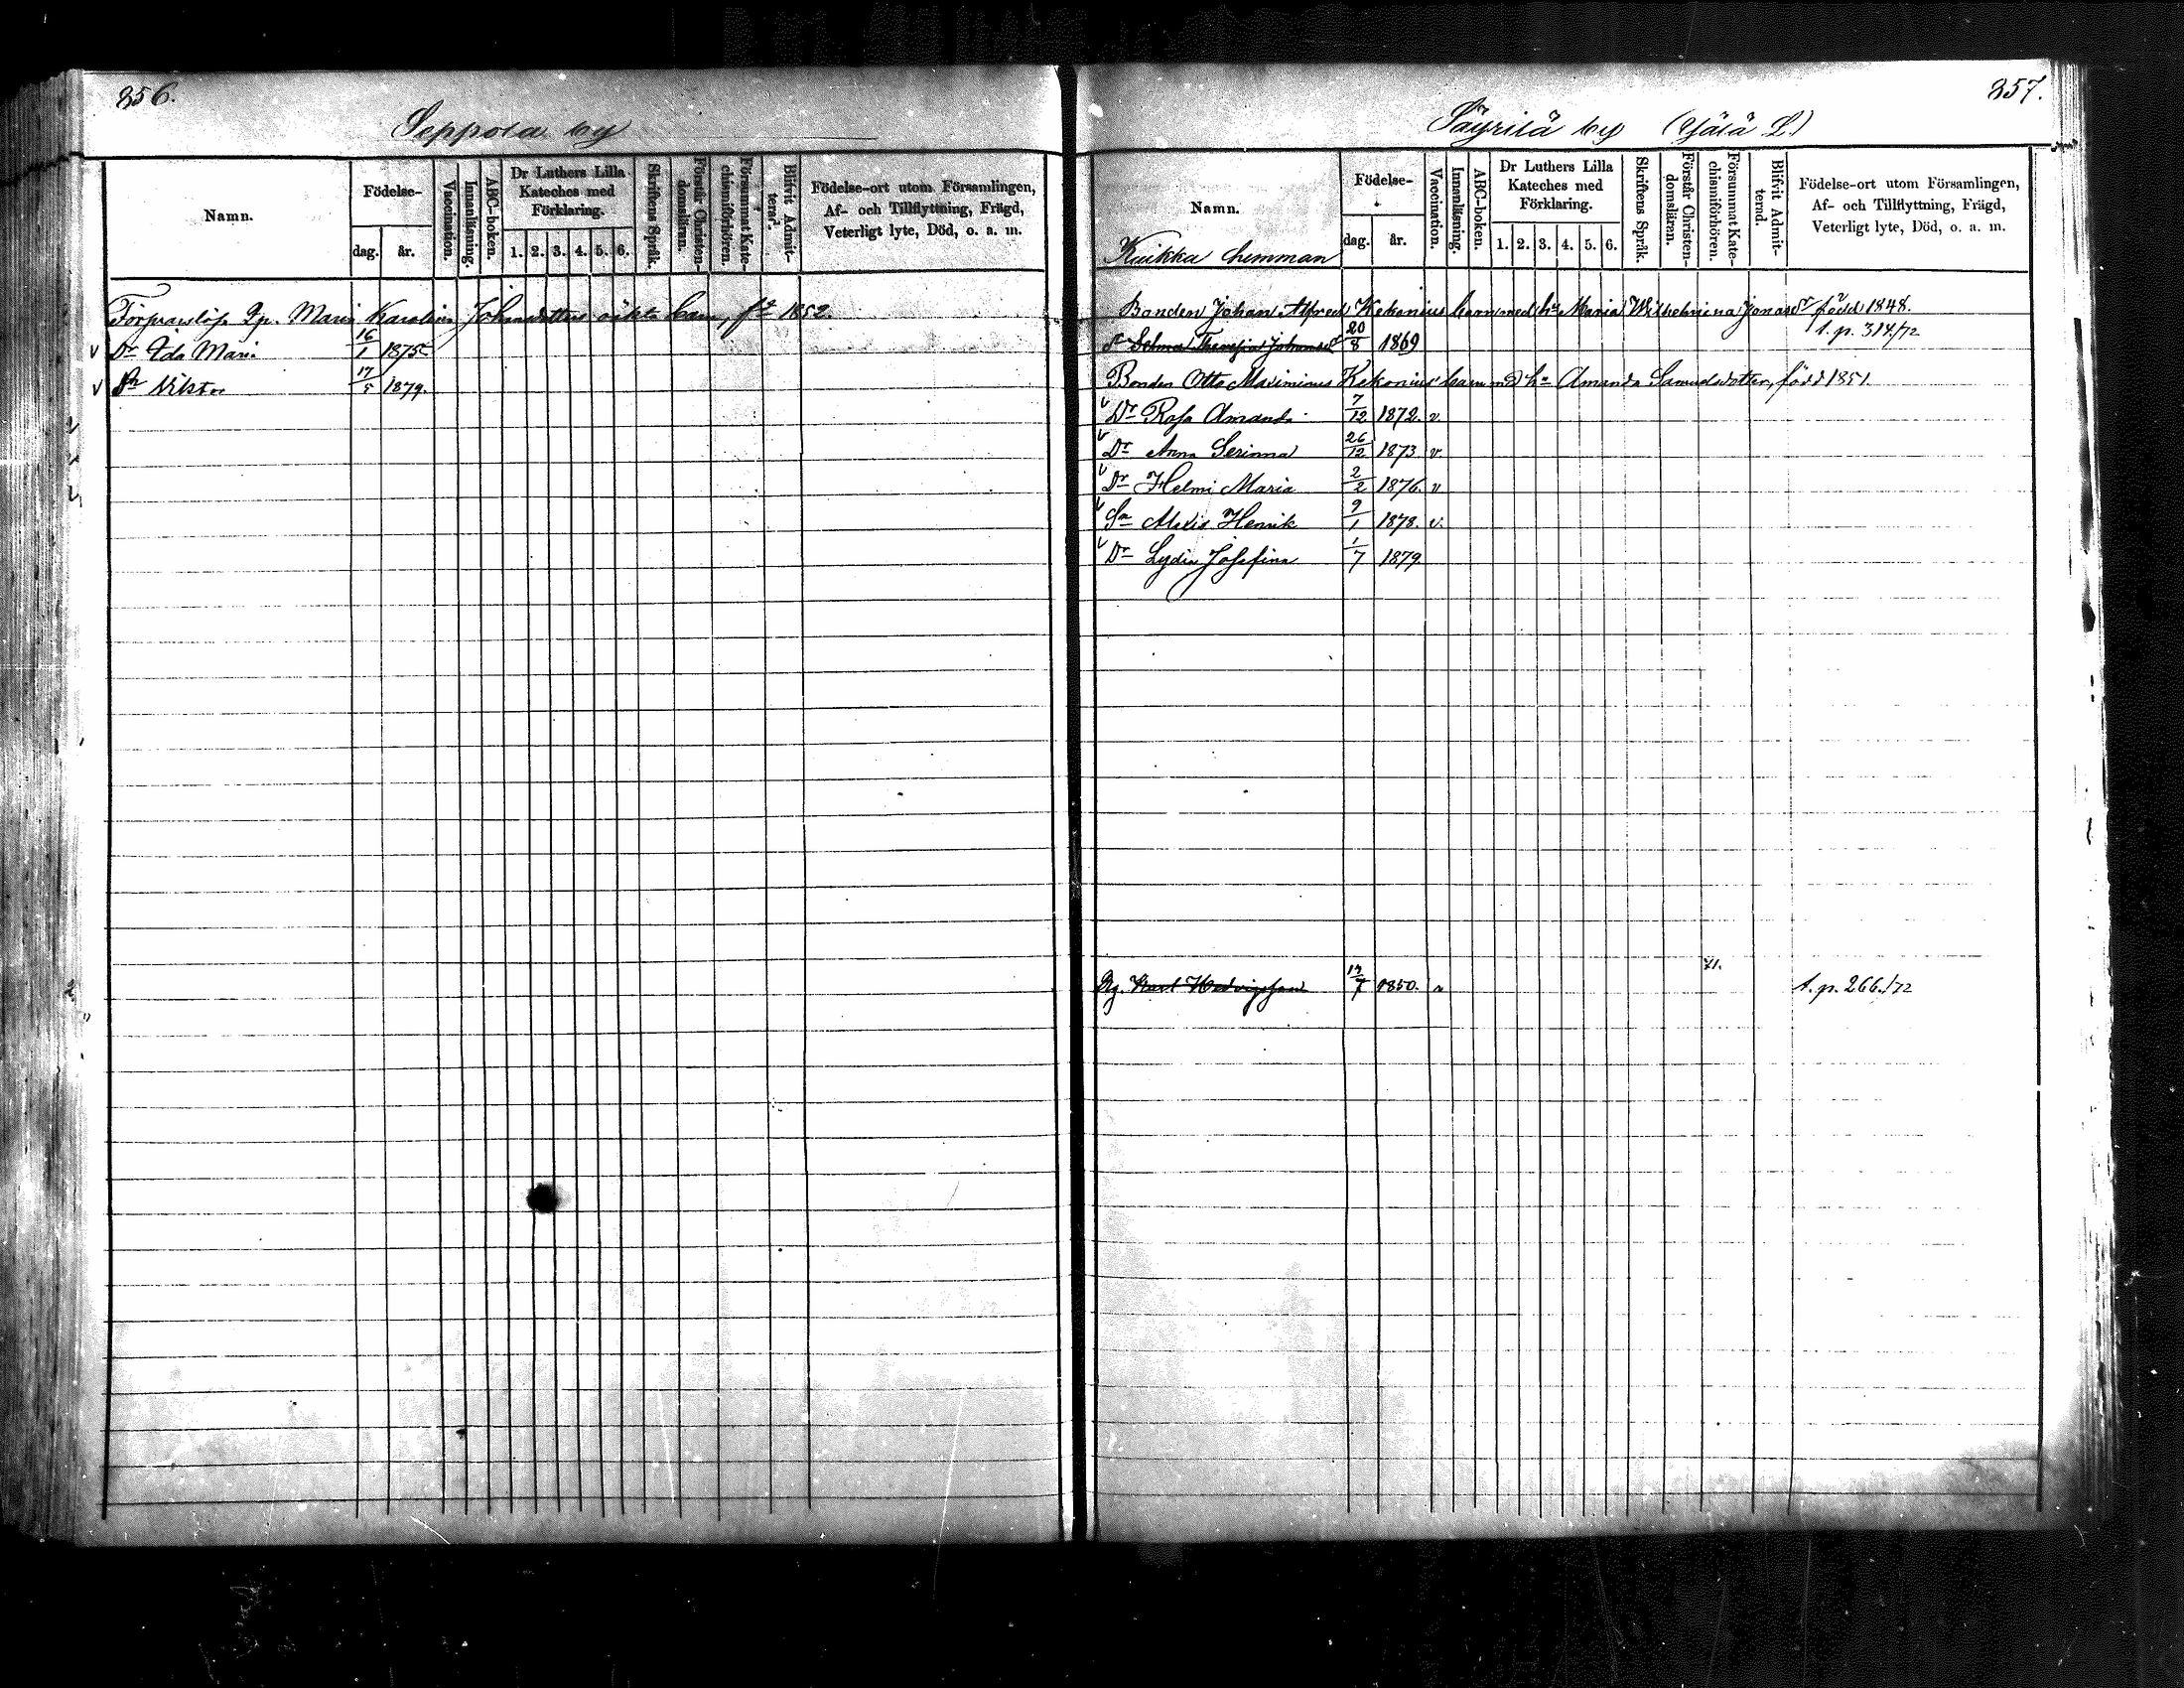 256.
Seppola by
Namn.
Födelse-
dag.
år.
Vaccination.
Innanläsning.
ABC-boken.
Dr Luthers Lilla
Kateches med
Förklaring.
1. 2. 3. 4. 5. 6.
Skriftens Språk.
Förstår Christen-
domsläran.
Försummat Kate-
chismiförhören.
Blifvit Admit-
terad.
Födelse-ort utom Församlingen,
Af- och Tillflyttning, Frägd,
Veterligt lyte, Död, o. a. m.
Maria Karolina Johansdotters oäkta barn, fd 1852.
v Dr Ida Maria 16/1 1875
v Sn Viktor 17/5 1879.
257.
Säyrilä by (Yälä L.)
Namn.
Kuikka hemman
Födelse-
dag.
år.
Vaccination.
Innanläsning.
ABC-boken.
Dr Luthers Lilla
Kateches med
Förklaring.
1. 2. 3. 4. 5. 6.
Skriftens Språk.
Förstår Christen-
domsläran.
Försummat Kate-
chismiförhören.
Blifvit Admit-
terad.
Födelse-ort utom Församlingen,
Af- och Tillflyttning, Frägd,
Veterligt lyte, Död, o. a. m.
Bonden Johan Alfred Kekonius barn med hu Maria Wilhelmina Jonasdr född 1848.
Selma 20/8 1869 t. p. 314/72
Bonden Otto Maximinus Kekonius barn md hu Amanda Samuelsdotter, född 1851.
v Dr Rosa Amanda 7/12 1872. v
v Dr Anna Serinna 26/12 1873 v
v Dr Helmi Maria 2/2 1876. v
v Sn Alexis Henrik 9/1 1878. v.
v Dr Lydia Josefina 1/7 1879.
71.
Dg. Karl Hedvigsson 17/7 1850. v t. p. 266./72